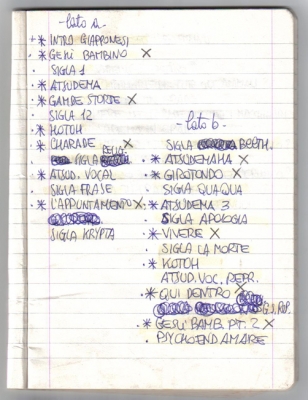 lato a.
* INTRO GIAPPONESI
* GESÙ BAMBINO X
SIGLA 1
* ATSUDEMA
* GAMBE STORTE X
SIGLA 12
* KOTOH
* CHARADE X
SIGLA RELIG.
* ATSUD. VOCAL
SIGLA FRASE
* L'APPUNTAMENTO X
SIGLA KRYPTA
lato b.
SIGLA BEETH.
* ATSUDEMAHA X
* GIROTONDO X
SIGLA QUAQUA
* ATSUDEMA 3
SIGLA APOLOGIA
* VIVERE X
SIGLA LA MORTE
* KOTOH
ATSUD. VOC. REPR.
* QUI DENTRO X
* GESÙ BAMB. PT. 2 X
PSYCHOENDAMARE